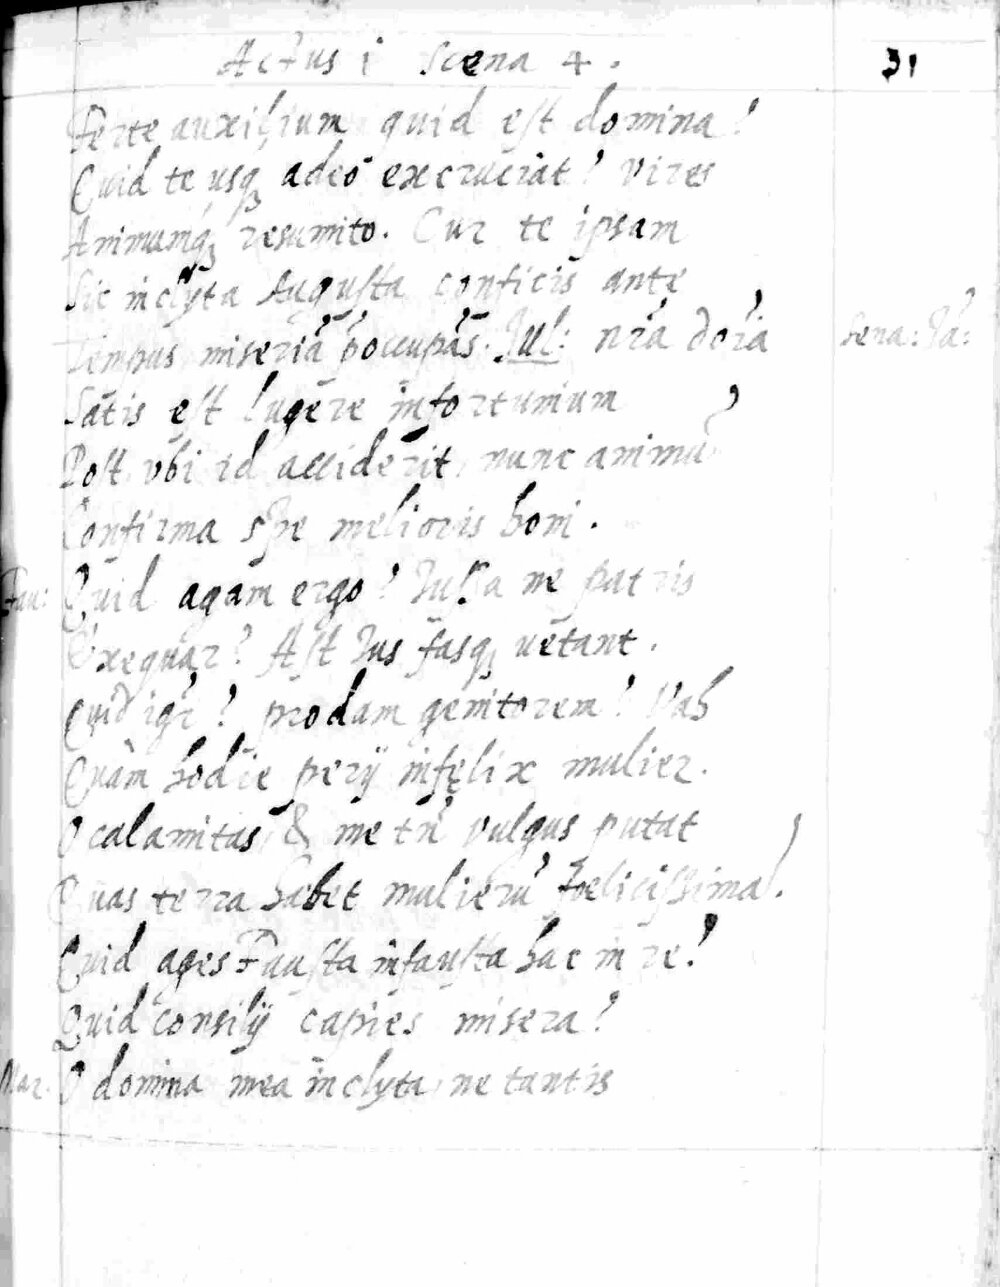 Actus i Scena 4.
31
Ferte auxilium quid est domina?
Quid te usq adeò excruciat? vires
Animumq resumito. Cur te ipsam
Sic inclyta Augusta conficis ante
Tempus miseriā p̄occupās. Jul: nr̄a dōia
Sena: Iā:
Satis est lugere infortunium
Post vbi id acciderit, nunc animū
Confirma spe melioris boni.
Fau: Quid agam ergo? Iussa ne patris
Exequar? Ast Ius fasq uetant.
Quid igr̄? prodam genitorem? Vah
Quàm hodie perij infęlix mulier.
O calamitas, & me tn̄ vulgus putat
Quas terra habet mulierū foelicissimā.
Quid ages Fausta infausta hac in re?
Quid consilij capies misera?
Mar. O domina mea inclyta ne tantis